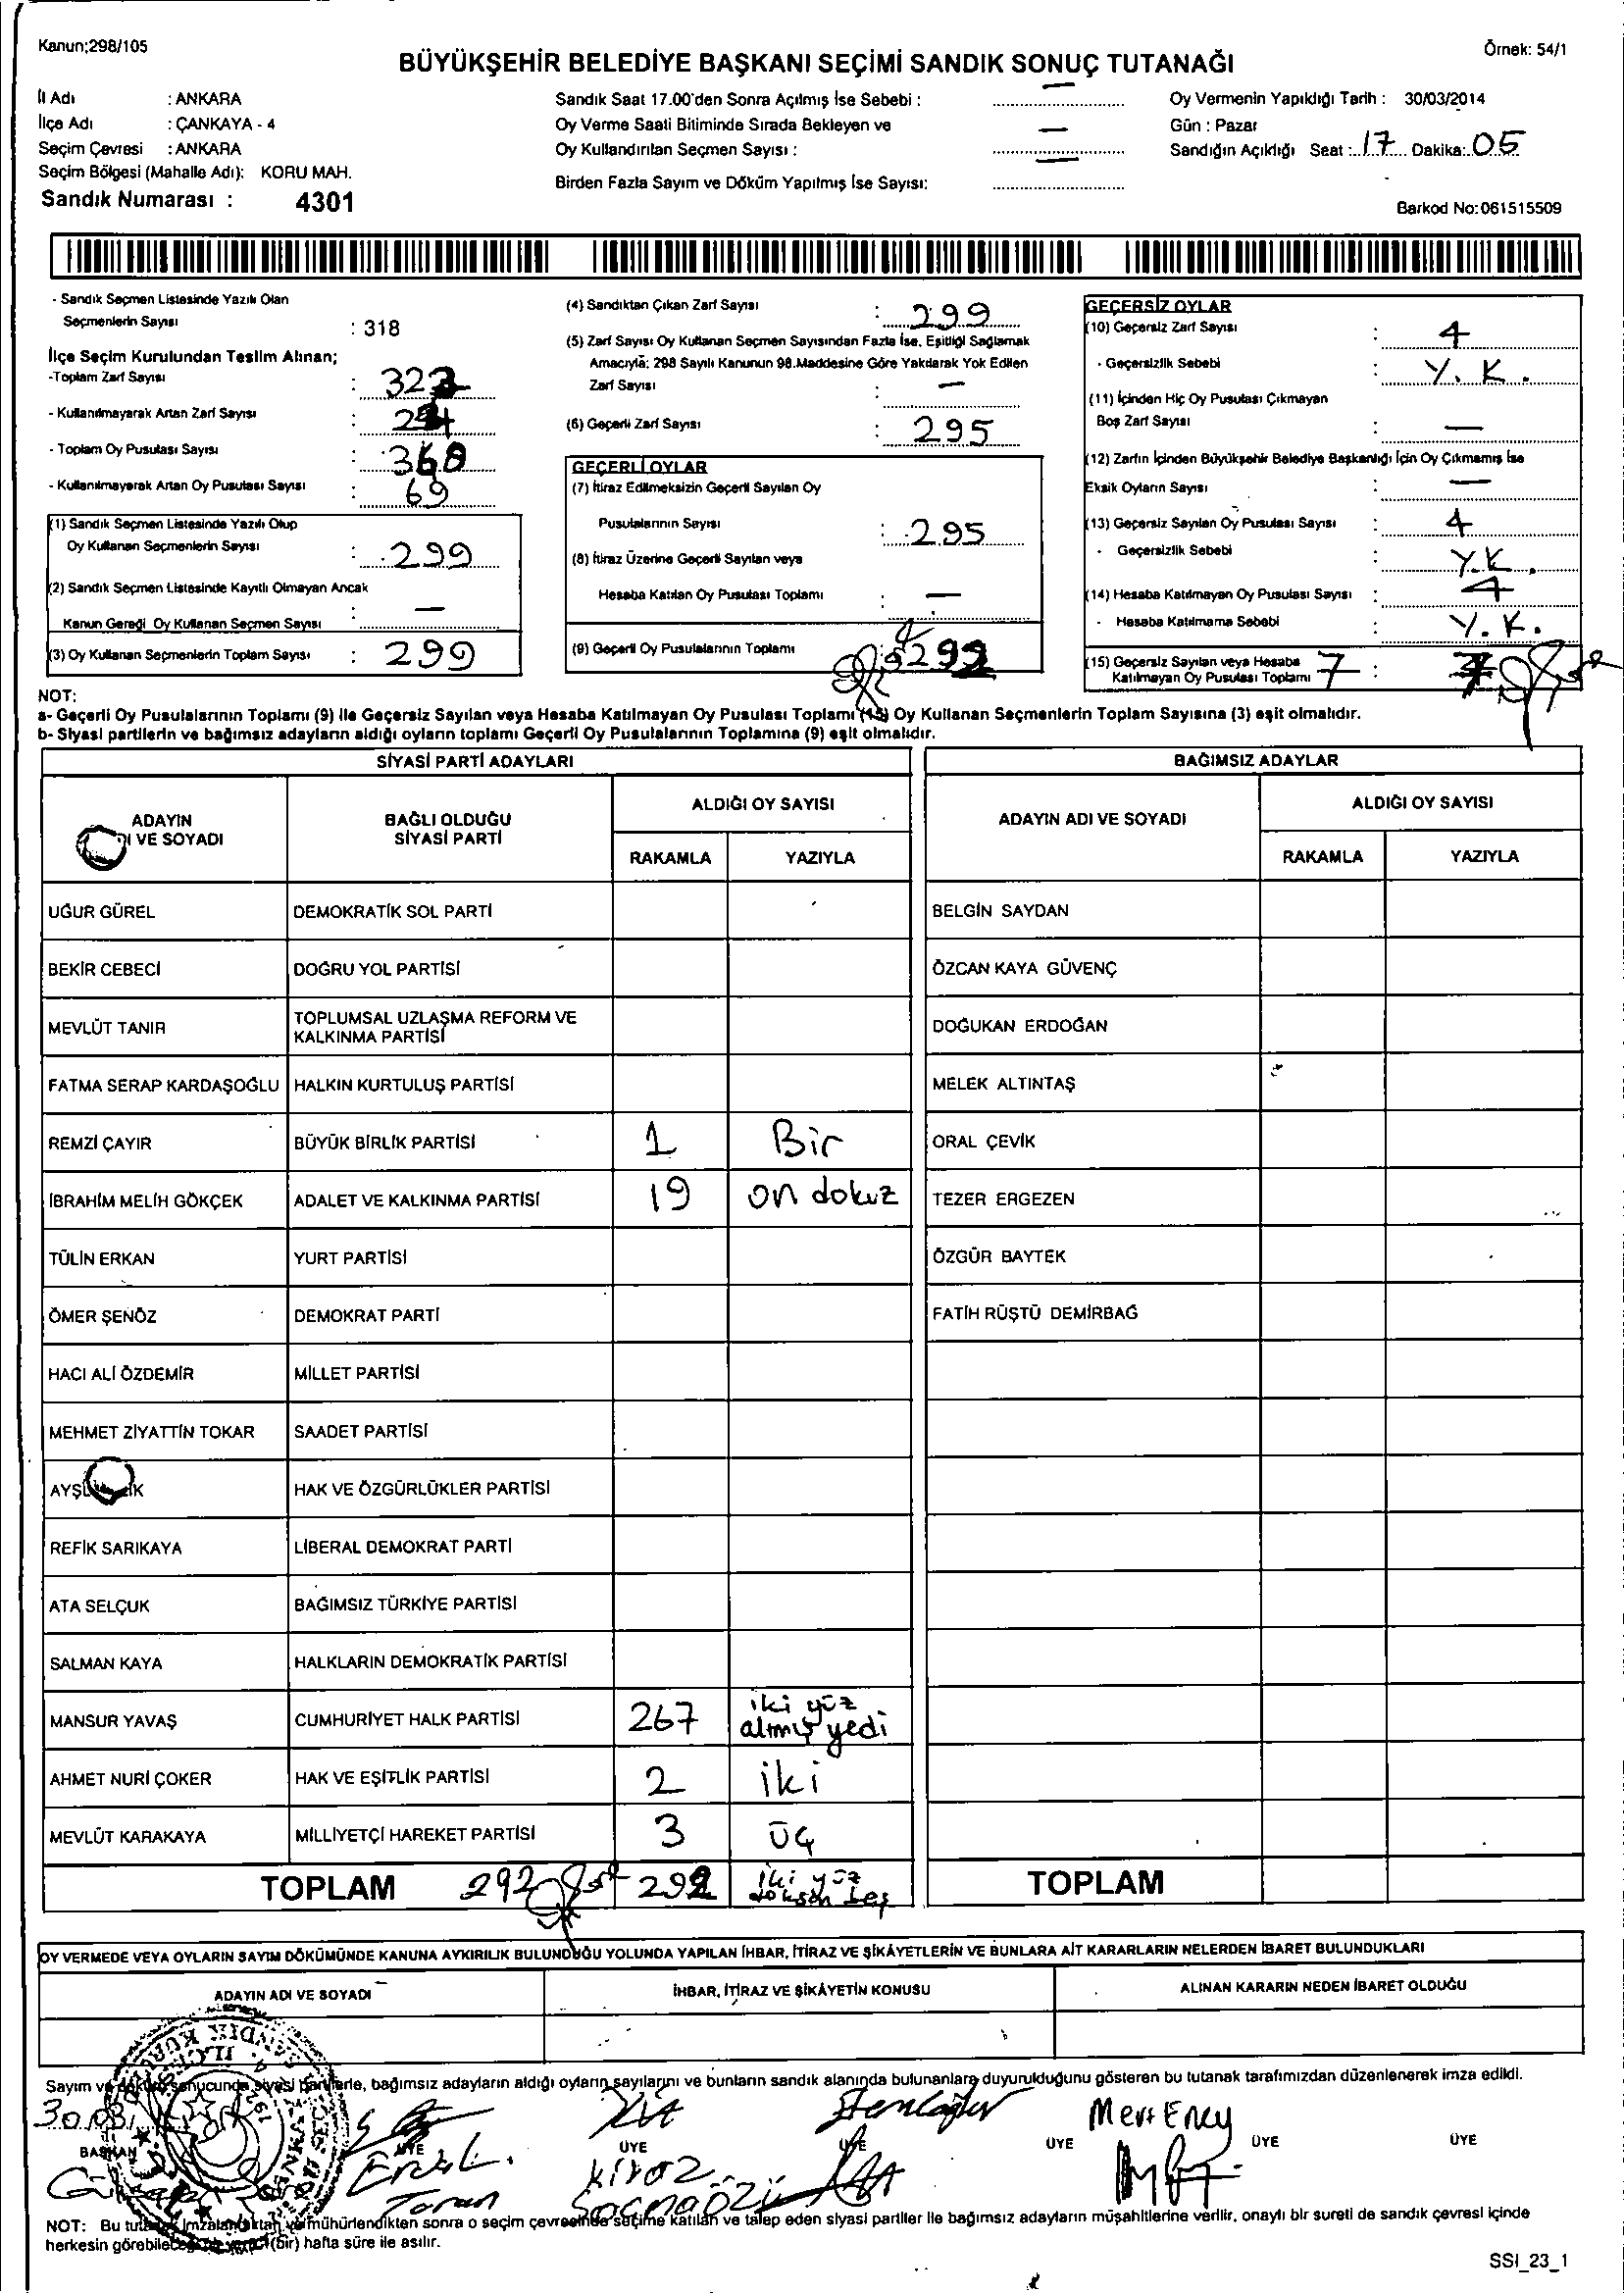 Kanun;298/105
Örnek: 54/1
BÜYÜKŞEHİR BELEDİYE BAŞKANI SEÇİMİ SANDIK SONUÇ TUTANAĞI
İl Adı : ANKARA
İlçe Adı : ÇANKAYA - 4
Seçim Çevresi : ANKARA
Seçim Bölgesi (Mahalle Adı): KORU MAH.
Sandık Numarası : 4301
Sandık Saat 17.00'den Sonra Açılmış İse Sebebi : —
Oy Verme Saati Bitiminde Sırada Bekleyen ve
Oy Kullandırılan Seçmen Sayısı : —
Birden Fazla Sayım ve Döküm Yapılmış İse Sayısı: —
Oy Vermenin Yapıldığı Tarih : 30/03/2014
Gün : Pazar
Sandığın Açıldığı Saat : 17 Dakika: 05
Barkod No:061515509
- Sandık Seçmen Listesinde Yazılı Olan
Seçmenlerin Sayısı : 318
İlçe Seçim Kurulundan Teslim Alınan;
-Toplam Zarf Sayısı :
- Kullanılmayarak Artan Zarf Sayısı :
- Toplam Oy Pusulası Sayısı : 368
- Kullanılmayarak Artan Oy Pusulası Sayısı : 69
(1) Sandık Seçmen Listesinde Yazılı Olup
Oy Kullanan Seçmenlerin Sayısı : 299
(2) Sandık Seçmen Listesinde Kayıtlı Olmayan Ancak
Kanun Gereği Oy Kullanan Seçmen Sayısı : —
(3) Oy Kullanan Seçmenlerin Toplam Sayısı : 299
(4) Sandıktan Çıkan Zarf Sayısı : 299
(5) Zarf Sayısı Oy Kullanan Seçmen Sayısından Fazla İse, Eşitliği Sağlamak
Amacıyla; 298 Sayılı Kanunun 98.Maddesine Göre Yakılarak Yok Edilen
Zarf Sayısı : —
(6) Geçerli Zarf Sayısı : 295
GEÇERLİ OYLAR
(7) İtiraz Edilmeksizin Geçerli Sayılan Oy
Pusulalarının Sayısı : 295
(8) İtiraz Üzerine Geçerli Sayılan veya
Hesaba Katılan Oy Pusulası Toplamı : —
(9) Geçerli Oy Pusulalarının Toplamı : 292
GEÇERSİZ OYLAR
(10) Geçersiz Zarf Sayısı : 4
- Geçersizlik Sebebi : Y. K.
(11) İçinden Hiç Oy Pusulası Çıkmayan
Boş Zarf Sayısı : —
(12) Zarfın İçinden Büyükşehir Belediye Başkanlığı İçin Oy Çıkmamış İse
Eksik Oyların Sayısı —
(13) Geçersiz Sayılan Oy Pusulası Sayısı : 4
- Geçersizlik Sebebi : Y.K.
(14) Hesaba Katılmayan Oy Pusulası Sayısı : 4
- Hesaba Katılmama Sebebi : Y. K.
(15) Geçersiz Sayılan veya Hesaba
Katılmayan Oy Pusulası Toplamı 7 : 7
NOT:
a- Geçerli Oy Pusulalarının Toplamı (9) ile Geçersiz Sayılan veya Hesaba Katılmayan Oy Pusulası Toplamı (15) Oy Kullanan Seçmenlerin Toplam Sayısına (3) eşit olmalıdır.
b- Siyasi partilerin ve bağımsız adayların aldığı oyların toplamı Geçerli Oy Pusulalarının Toplamına (9) eşit olmalıdır.
SİYASİ PARTİ ADAYLARI
BAĞIMSIZ ADAYLAR
ADAYIN
VE SOYADI
BAĞLI OLDUĞU
SİYASİ PARTİ
ALDIĞI OY SAYISI
RAKAMLA YAZIYLA
ADAYIN ADI VE SOYADI
ALDIĞI OY SAYISI
RAKAMLA YAZIYLA
UĞUR GÜREL DEMOKRATİK SOL PARTİ BELGİN SAYDAN
BEKİR CEBECİ DOĞRU YOL PARTİSİ ÖZCAN KAYA GÜVENÇ
MEVLÜT TANIR TOPLUMSAL UZLAŞMA REFORM VE
KALKINMA PARTİSİ DOĞUKAN ERDOĞAN
FATMA SERAP KARDAŞOĞLU HALKIN KURTULUŞ PARTİSİ MELEK ALTINTAŞ
REMZİ ÇAYIR BÜYÜK BİRLİK PARTİSİ 1 Bir ORAL ÇEVİK
İBRAHİM MELİH GÖKÇEK ADALET VE KALKINMA PARTİSİ 19 on dokuz TEZER ERGEZEN
TÜLİN ERKAN YURT PARTİSİ ÖZGÜR BAYTEK
ÖMER ŞENÖZ DEMOKRAT PARTİ FATİH RÜŞTÜ DEMİRBAĞ
HACI ALİ ÖZDEMİR MİLLET PARTİSİ
MEHMET ZİYATTİN TOKAR SAADET PARTİSİ
HAK VE ÖZGÜRLÜKLER PARTİSİ
REFİK SARIKAYA LİBERAL DEMOKRAT PARTİ
ATA SELÇUK BAĞIMSIZ TÜRKİYE PARTİSİ
SALMAN KAYA HALKLARIN DEMOKRATİK PARTİSİ
MANSUR YAVAŞ CUMHURİYET HALK PARTİSİ 267 iki yüz
altmış yedi
AHMET NURİ ÇOKER HAK VE EŞİTLİK PARTİSİ 2 iki
MEVLÜT KARAKAYA MİLLİYETÇİ HAREKET PARTİSİ 3 üç
TOPLAM 292 292 iki yüz
doksan beş
TOPLAM
OY VERMEDE VEYA OYLARIN SAYIM DÖKÜMÜNDE KANUNA AYKIRILIK BULUNDUĞU YOLUNDA YAPILAN İHBAR, İTİRAZ VE ŞİKÂYETLERİN VE BUNLARA AİT KARARLARIN NELERDEN İBARET BULUNDUKLARI
ADAYIN ADI VE SOYADI İHBAR, İTİRAZ VE ŞİKÂYETİN KONUSU ALINAN KARARIN NEDEN İBARET OLDUĞU
Sayım ve döküm sonucunda siyasi partilerle, bağımsız adayların aldığı oyların sayılarını ve bunların sandık alanında bulunanlara duyurulduğunu gösteren bu tutanak tarafımızdan düzenlenerek imza edildi.
30.03.
Mert Eney
BAŞKAN ÜYE ÜYE ÜYE ÜYE ÜYE ÜYE
Kiraz
Toran
NOT: Bu tutanak imzalandıktan ve mühürlendikten sonra o seçim çevresinde seçime katılan ve talep eden siyasi partiler ile bağımsız adayların müşahitlerine verilir, onaylı bir sureti de sandık çevresi içinde
herkesin görebileceği bir yere 1 (bir) hafta süre ile asılır.
SSI_23_1